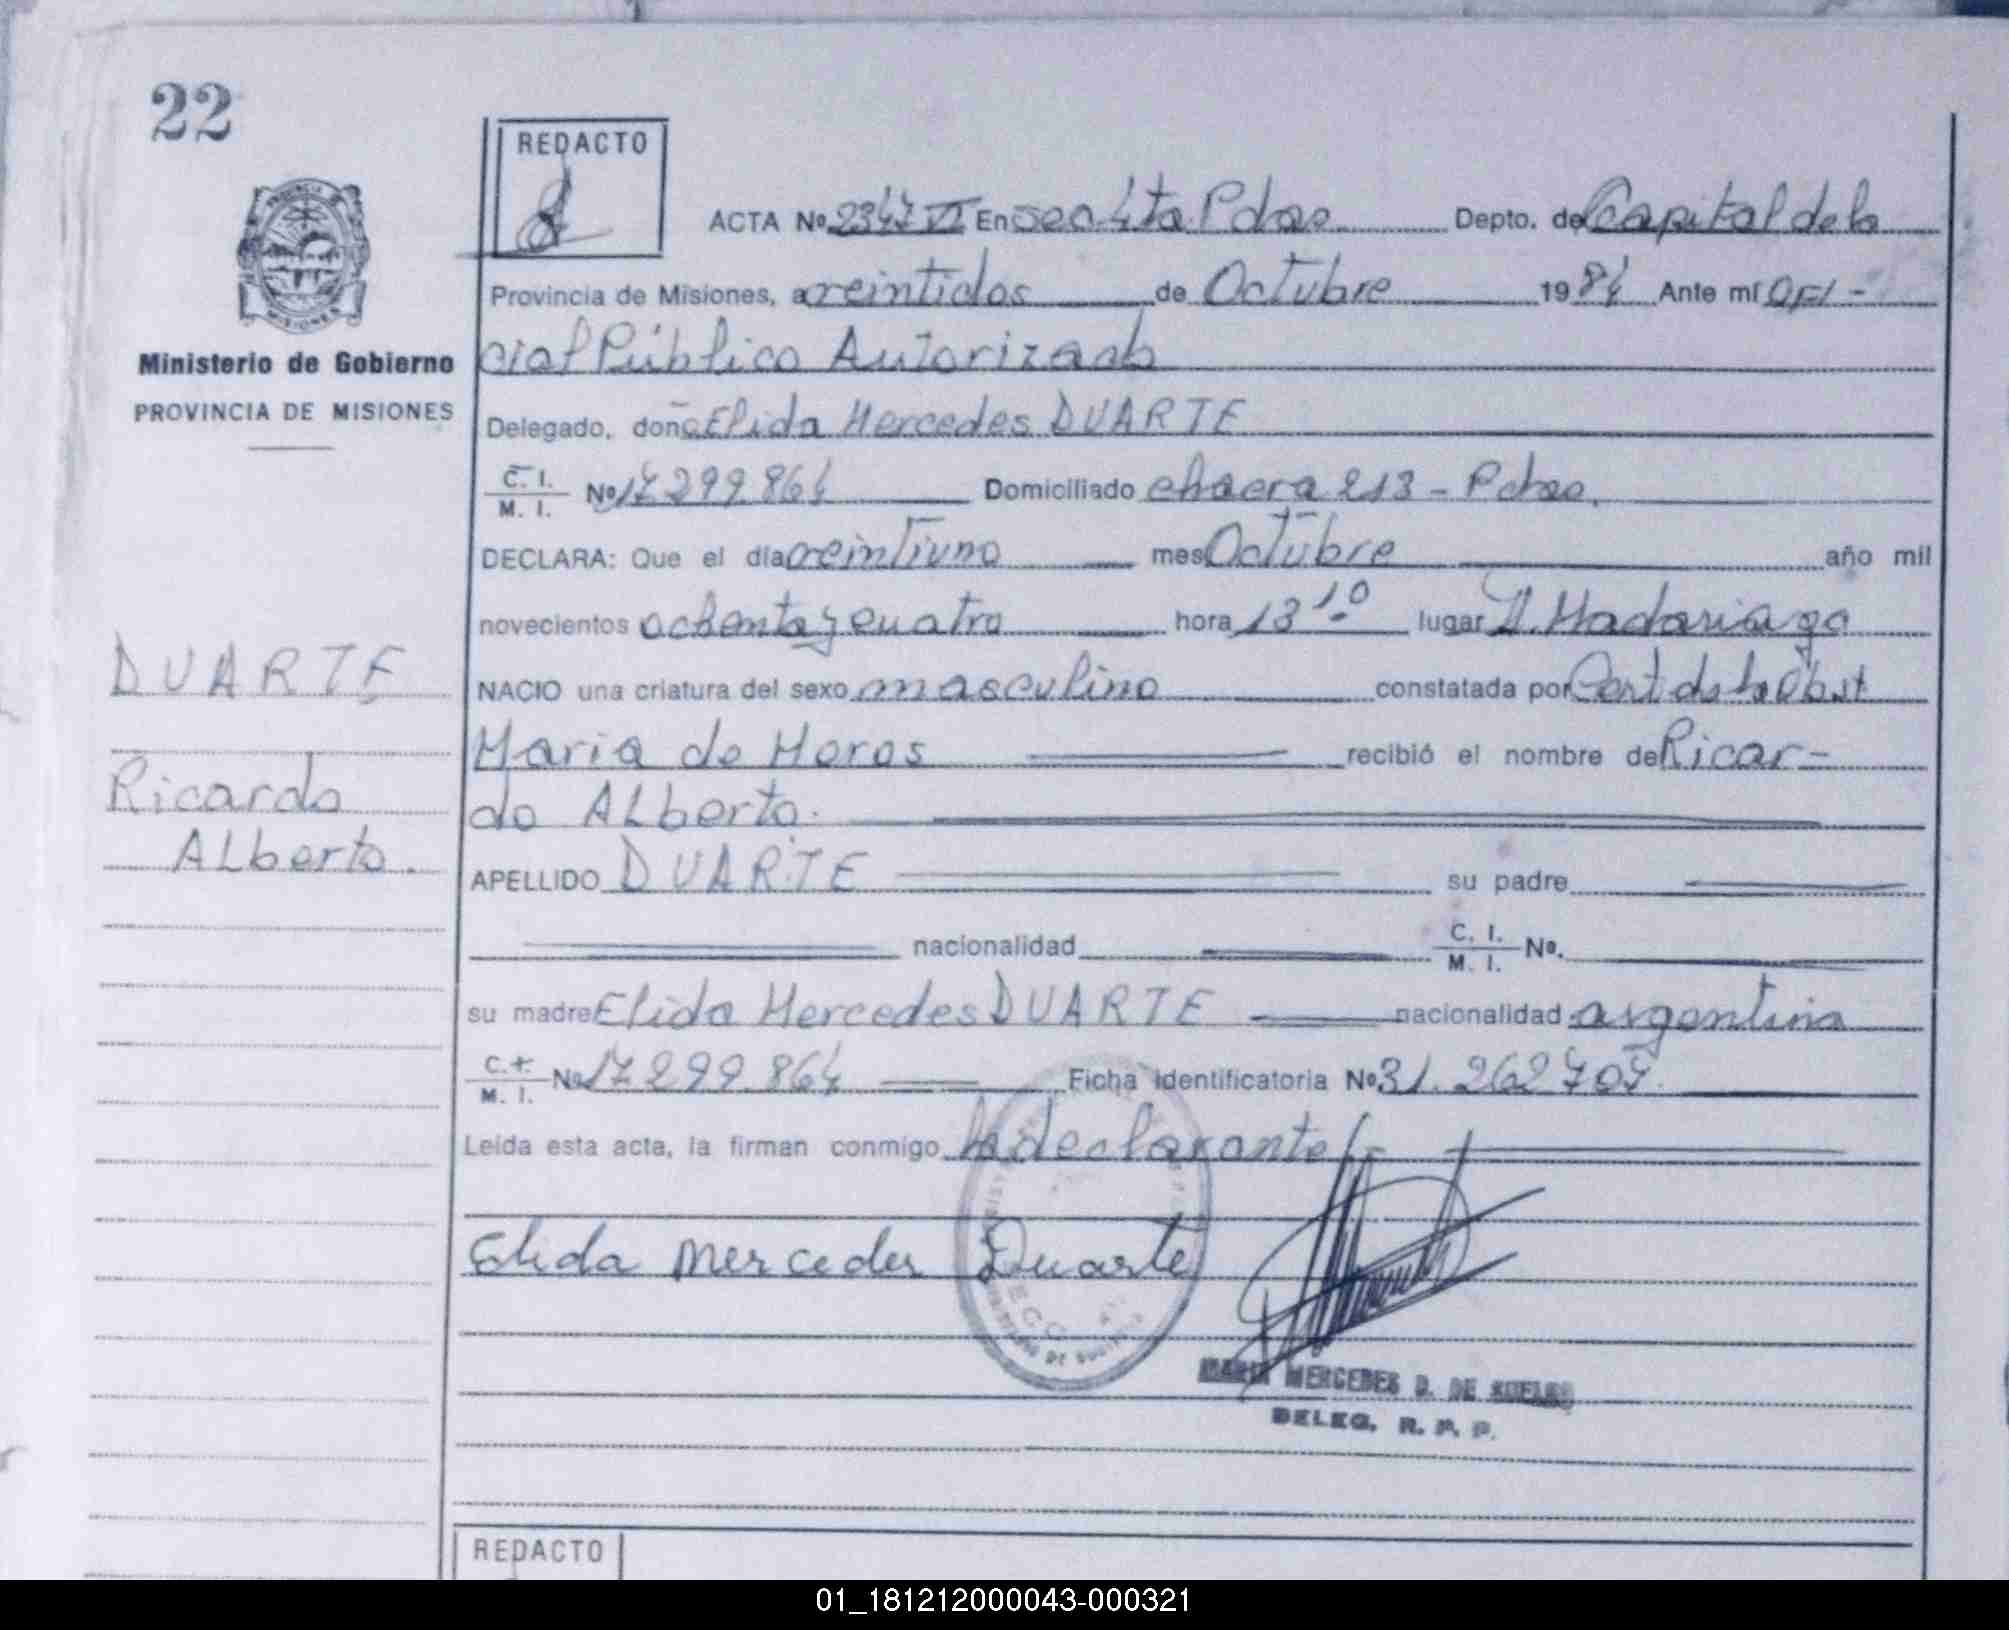 22
REDACTO
ACTA Nº 2347 VI En sec. 4ta Pdas Depto. de Capital de la
Provincia de Misiones, a veintidos de Octubre 1984 Ante mí Ofi-
cial Público Autorizado
Ministerio de Gobierno
PROVINCIA DE MISIONES
Delegado, doña Elida Mercedes DUARTE
C. I. / M. I. Nº 17 299 864 Domiciliado chacra 213 - Pdas.
DECLARA: Que el día veintiuno mes Octubre año mil
novecientos ochenta y cuatro hora 13 10 lugar H. Madariaga
DUARTE
NACIO una criatura del sexo masculino constatada por Cert de la Obst
Maria de Horos recibió el nombre de Ricar-
Ricardo
do ALberto.
ALberto.
APELLIDO DUARTE su padre
nacionalidad C. I. / M. I. Nº.
su madre Elida Mercedes DUARTE nacionalidad argentina
C. I. / M. I. Nº 17 299 864 Ficha Identificatoria Nº 31.262 707.
Leída esta acta, la firman conmigo la declarante
Elida Mercedes Duarte
MARIA MERCEDES D. DE
DELEG. R. P. P.
REDACTO
01_181212000043-000321